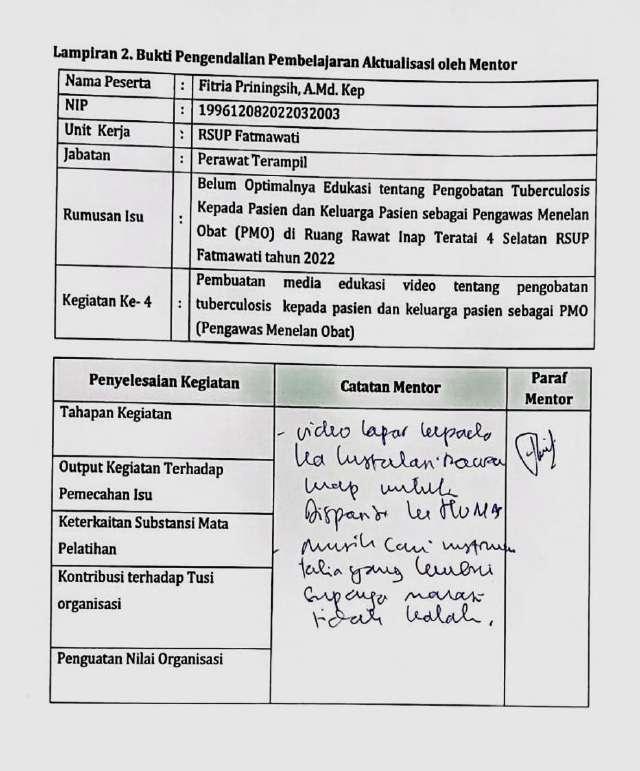 Lampiran 2. Bukti Pengendalian Pembelajaran Aktualisasi oleh Mentor
Nama Peserta : Fitria Priningsih, A.Md. Kep
NIP : 199612082022032003
Unit Kerja : RSUP Fatmawati
Jabatan : Perawat Terampil
Rumusan Isu : Belum Optimalnya Edukasi tentang Pengobatan Tuberculosis
Kepada Pasien dan Keluarga Pasien sebagai Pengawas Menelan
Obat (PMO) di Ruang Rawat Inap Teratai 4 Selatan RSUP
Fatmawati tahun 2022
Kegiatan Ke- 4 : Pembuatan media edukasi video tentang pengobatan
tuberculosis kepada pasien dan keluarga pasien sebagai PMO
(Pengawas Menelan Obat)
Penyelesaian Kegiatan
Catatan Mentor
Paraf
Mentor
Tahapan Kegiatan
Output Kegiatan Terhadap
Pemecahan Isu
Keterkaitan Substansi Mata
Pelatihan
Kontribusi terhadap Tusi
organisasi
Penguatan Nilai Organisasi
- video lapor kepada
Ka Instalasi
inap untuk
ke HUMAS
- musik cari
yang
supaya narasi
tidak kalah.